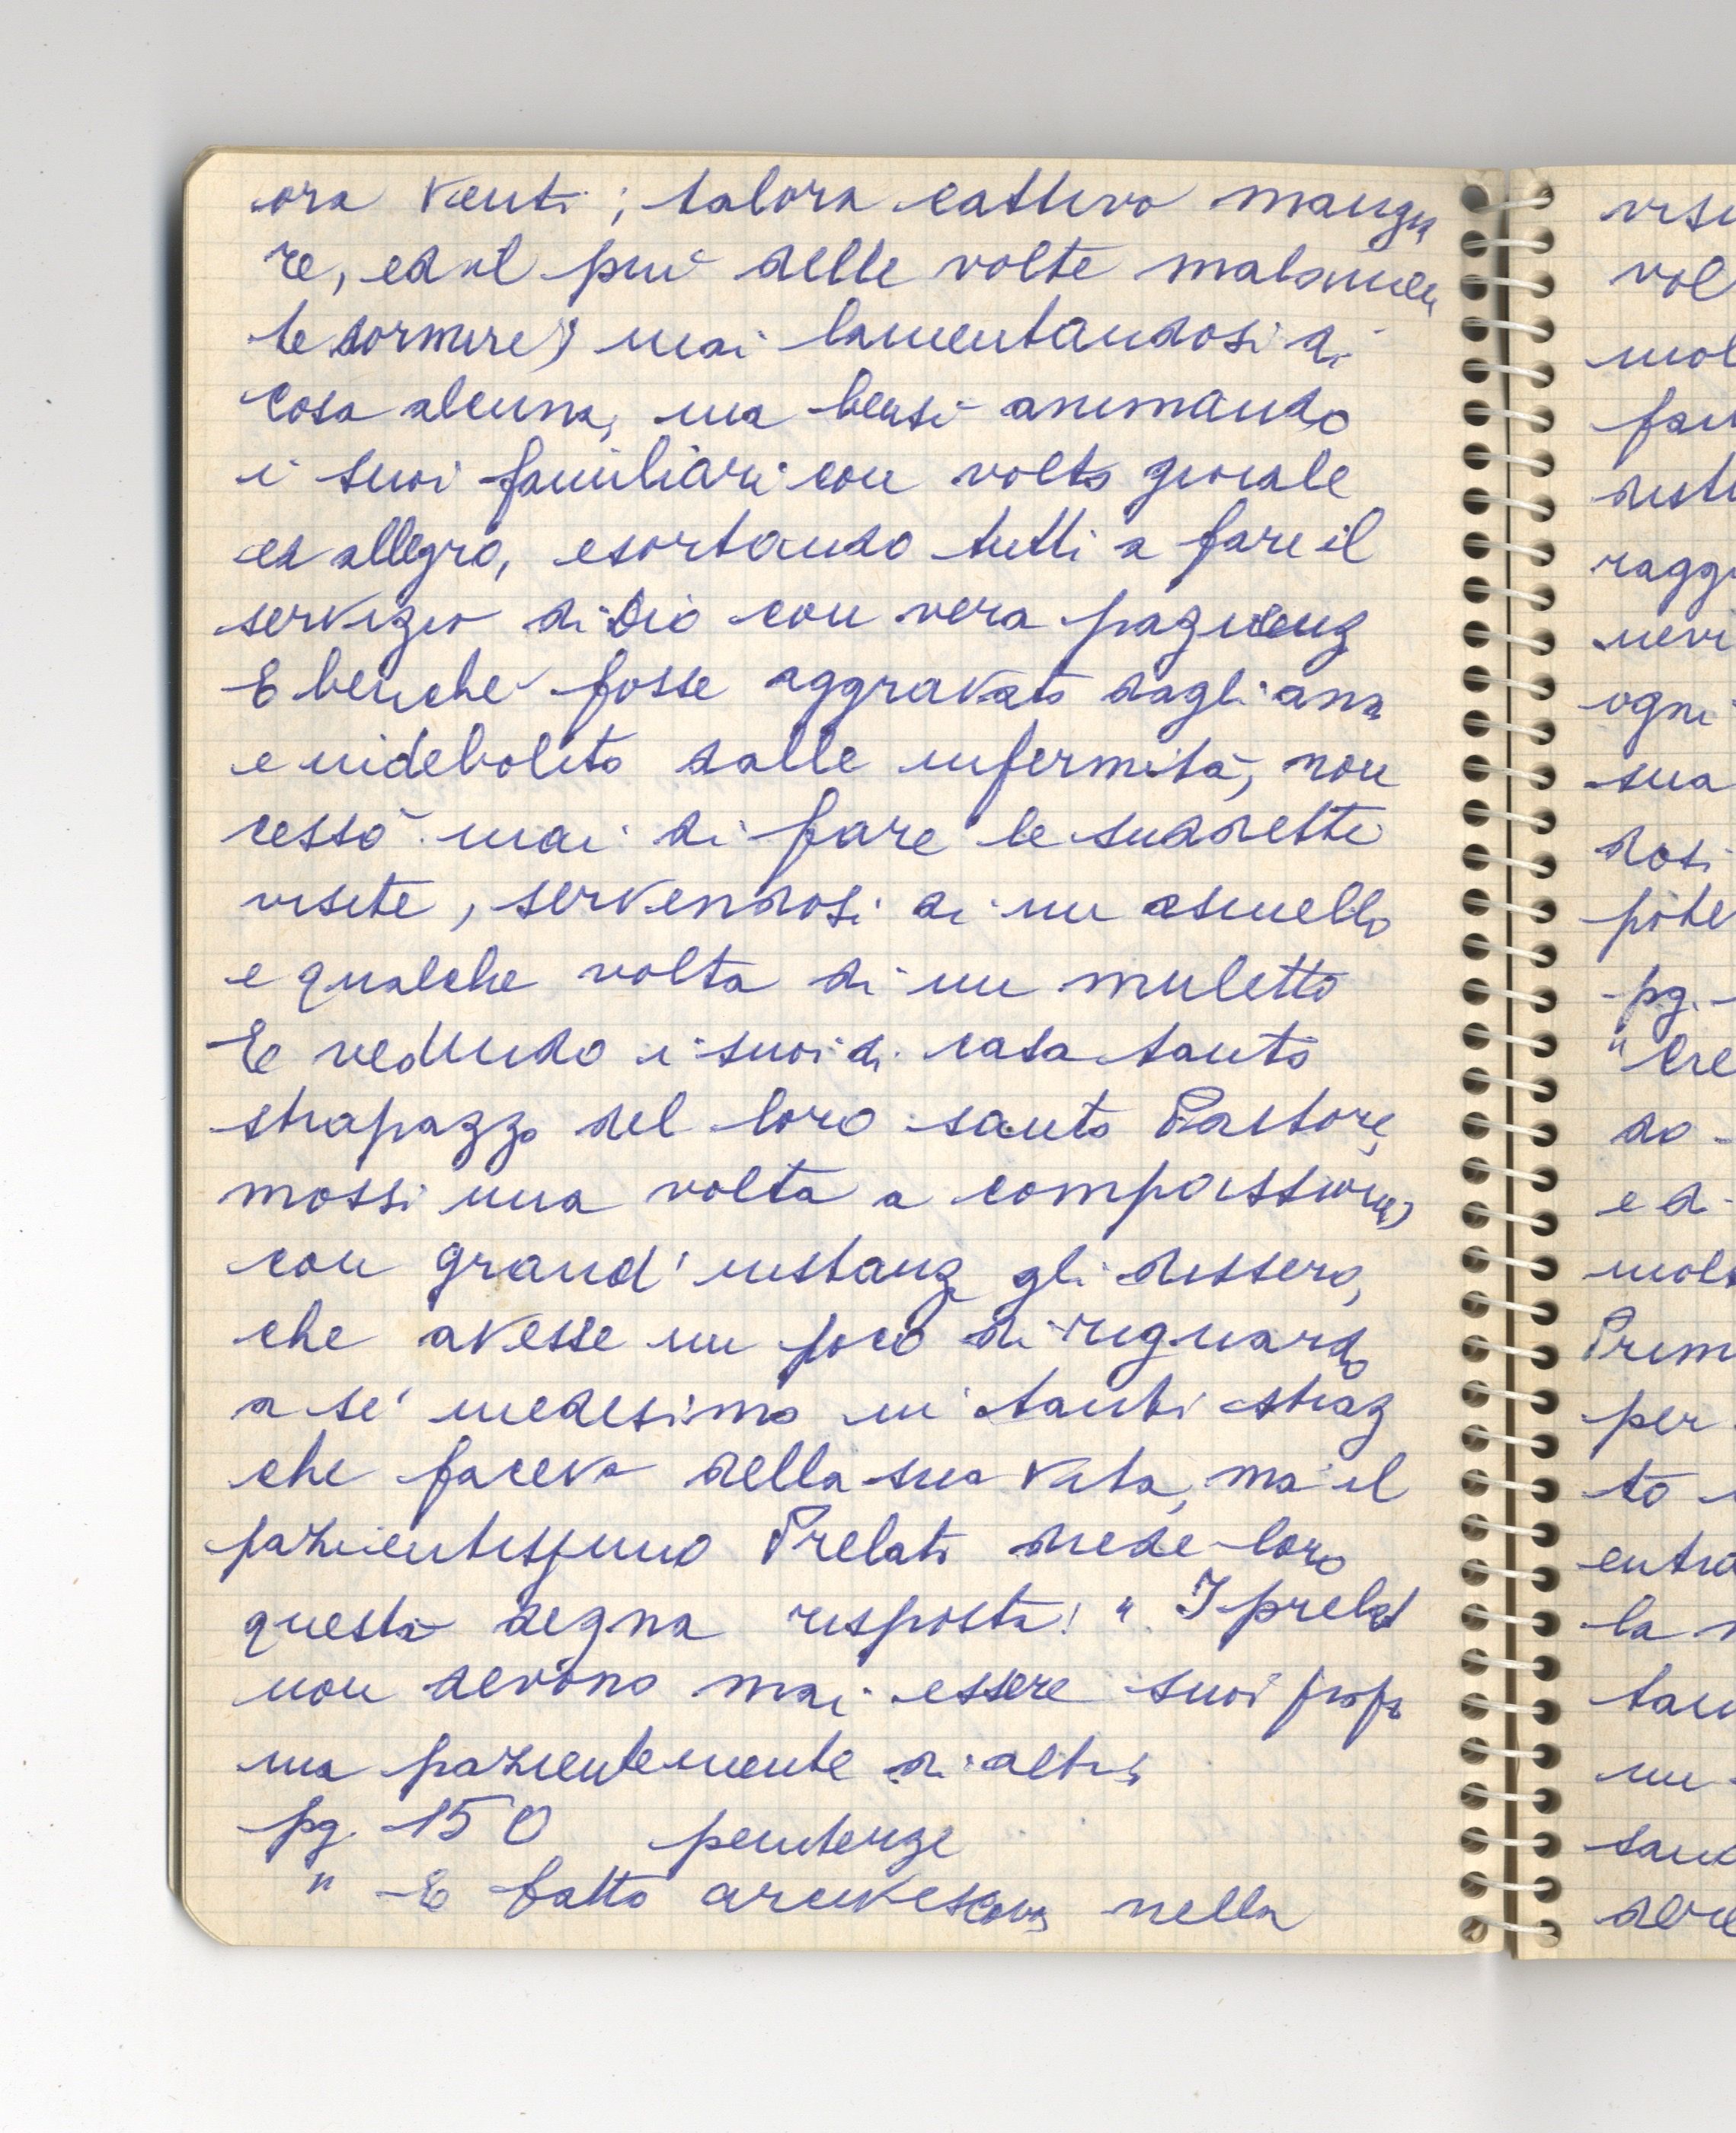 ora venti; talora cattivo mangia
re, ed il più delle volte malamen
te dormire) mai lamentandosi di
cosa alcuna, ma bensì animando
i suoi familiari con volto gioviale
ed allegro, esortando tutti a fare il
servizio di Dio con vera pazienz
E benché fosse aggravato dagli ann
e indebolito dalle infermità, non
cessò mai di fare le suddette
visite, servendosi di un asinello
e qualche volta di un muletto
E vedendo i suoi di casa tanto
strapazzo del loro santo Pastore,
mossi una volta a compassione,
con grand' instanz gli dissero,
che avesse un poco di riguardo
a se' medesimo in tanti straz
che faceva della sua vita, ma il
pazientissimo Prelato diede loro
questa degna risposta: " I prelat
non devono mai essere suoi prop
ma pazientemente di altri
pg. 150 penitenze
" E fatto arcivescovo nella
visi
vol
mol
fam
dist
raggu
nevi
ogni
sua
dosi
pote
pg.
" Cre
do
ed
molt
Prim
per
to
entra
la
tan
un
san